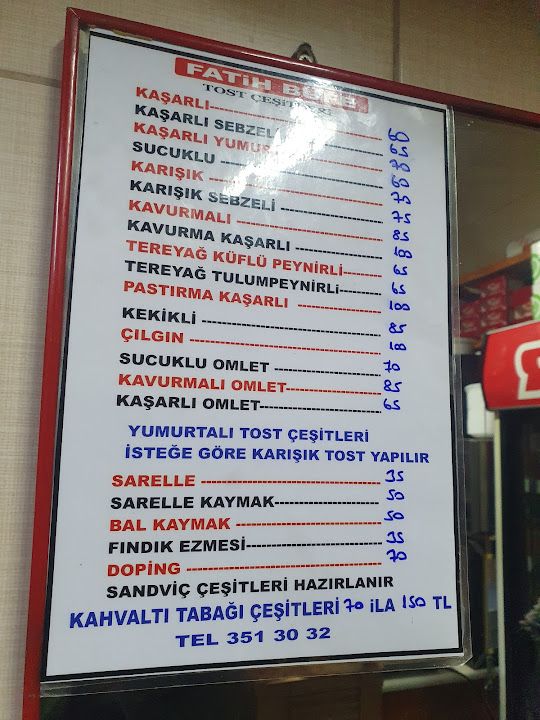 FATİH BÜFE
TOST ÇEŞİTLERİ
KAŞARLI 60
KAŞARLI SEBZELİ 65
KAŞARLI YUMURTALI 70
SUCUKLU 60
KARIŞIK 75
KARIŞIK SEBZELİ 75
KAVURMALI 85
KAVURMA KAŞARLI 100
TEREYAĞ KÜFLÜ PEYNİRLİ 65
TEREYAĞ TULUMPEYNİRLİ 65
PASTIRMA KAŞARLI 100
KEKİKLİ 85
ÇILGIN 100
SUCUKLU OMLET 70
KAVURMALI OMLET 85
KAŞARLI OMLET 65
YUMURTALI TOST ÇEŞİTLERİ
İSTEĞE GÖRE KARIŞIK TOST YAPILIR
SARELLE 35
SARELLE KAYMAK 50
BAL KAYMAK 50
FINDIK EZMESİ 35
DOPİNG 70
SANDVİÇ ÇEŞİTLERİ HAZIRLANIR
KAHVALTI TABAĞI ÇEŞİTLERİ 70 iLA 150 TL
TEL 351 30 32